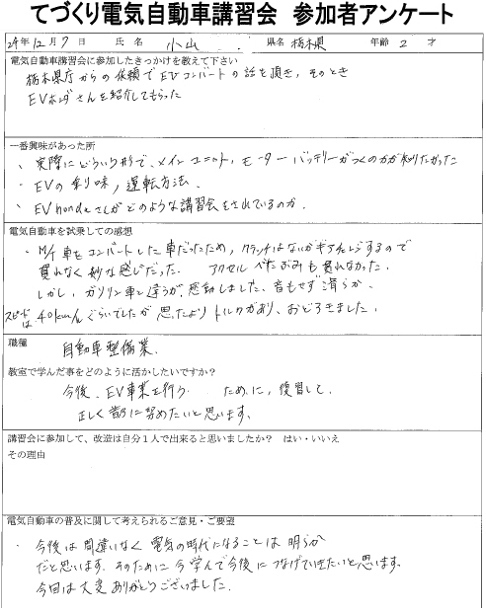 てづくり電気自動車講習会 参加者アンケート
24年12月7日 氏名 小山 県名 栃木県 年齢 2 才
電気自動車講習会に参加したきっかけを教えて下さい
栃木県庁からの依頼でEVコンバートの話を頂き、そのとき
EVホンダさんを紹介してもらった
一番興味があった所
、実際にどういう形で、メインユニット、モーターバッテリーがつくのかが知りたかった
・EVの乗り味、運転方法、
・EVhondaさんがどのような講習会をされているのか、
電気自動車を試乗しての感想
・M/T車をコンバートした車だったため、クラッチはないがギアチェンジするので
慣れなく妙な感じだった。 アクセルべたぶみも慣れなかった。
しかし、ガソリン車と違うが、感動しました、音もせず滑らか、
スピードは40km/hぐらいでしたが思ったよりトルクがあり、おどろきました。
職種 自動車整備業、
教室で学んだ事をどのように活かしたいですか?
今後、EV事業を行う ために、復習して、
正しく 努めたいと思います、
講習会に参加して、改造は自分1人で出来ると思いましたか? はい・いいえ
その理由
電気自動車の普及に関して考えられるご意見・ご要望
・今後は間違いなく電気の時代になることは明らか
だと思います、そのために今学んで今後につなげていきたいと思います、
今回は大変ありがとうございました、